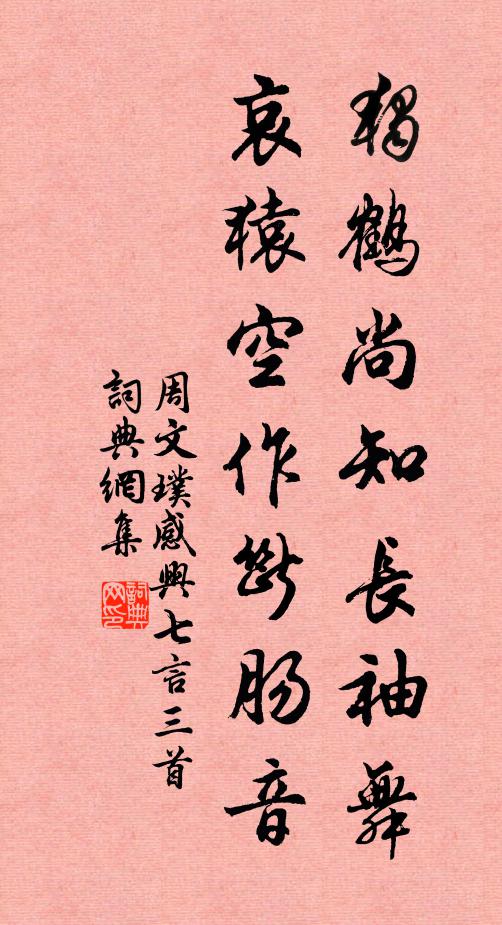 獨鶴尚知長袖舞
哀猿空作斷腸音
周文璞感興七言三首
詞典網集
詞典网印